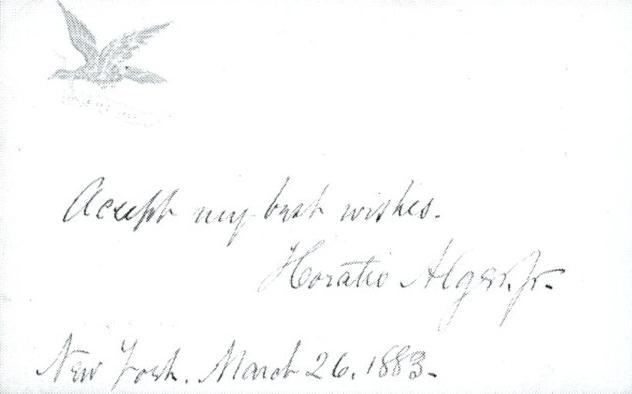 Accept my best wishes.
Horatio Alger, Jr.
New York. March 26. 1883.